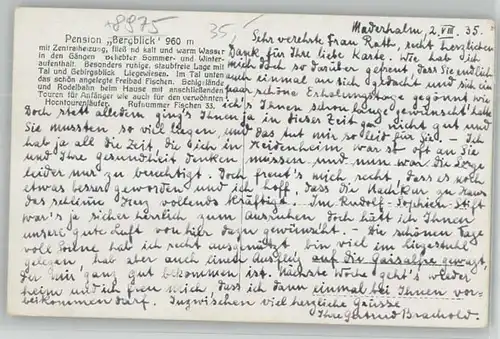 +8875
35,
Pension „Bergblick" 960 m
mit Zentralheizung, fließ nd kalt und warm Wasser
in den Gängen Beliebter Sommer- und Winter-
aufenthalt. Besonders ruhige, staubfreie Lage mit
Tal und Gebirgsblick Liegewiesen. Im Tal unten
das schön angelegte Freibad Fischen. Skigelände
und Rodelbahn beim Hause mit anschließenden
Touren für Anfänger wie auch für den verwöhnten
Hochtourenläufer. Rufnummer Fischen 53.
Maderhalm, 2. VIII. 35.
Sehr verehrte Frau Rath, recht herzlichen
Dank für Ihre liebe Karte. Wie hab ich
mich doch so darüber gefreut, dass Sie endlich
auch einmal an sich gedacht und sich ein
paar schöne Erholungstage gegönnt wie
ich's Ihnen schon lange gewünscht hatte.
Doch statt alledem ging's Ihnen ja in dieser Zeit gar nicht gut und
Sie mussten so viel liegen, und das tut mir so leid für Sie. Ich
hab ja all die Zeit, die ich in Heidenheim war so oft an Sie
und Ihre Gesundheit denken müssen und nun war die Sorge
leider nur zu berechtigt. Doch freut's mich recht, dass es noch
etwas besser geworden und ich hoff, dass die Nachkur zu Haus
das schlimme Herz vollends kräftigt. Im Rudolf-Sophien-Stift
war's ja sicher herrlich zum Ausruhen doch hätt ich Ihnen
unsere gute Luft von hier dazu gewünscht. - Die schönen Tage
voll Sonne hab ich recht ausgenützt bin viel im Liegestuhl
gelegen, hab aber auch einen Ausflug auf die Gaisalpe gewagt,
der mir ganz gut bekommen ist. Nächste Woche geht's wieder
heim und ich freu mich, dass ich dann einmal bei Ihnen vor-
beikommen darf. Inzwischen viel herzliche Grüsse
Ihre Gertrud Brachold.